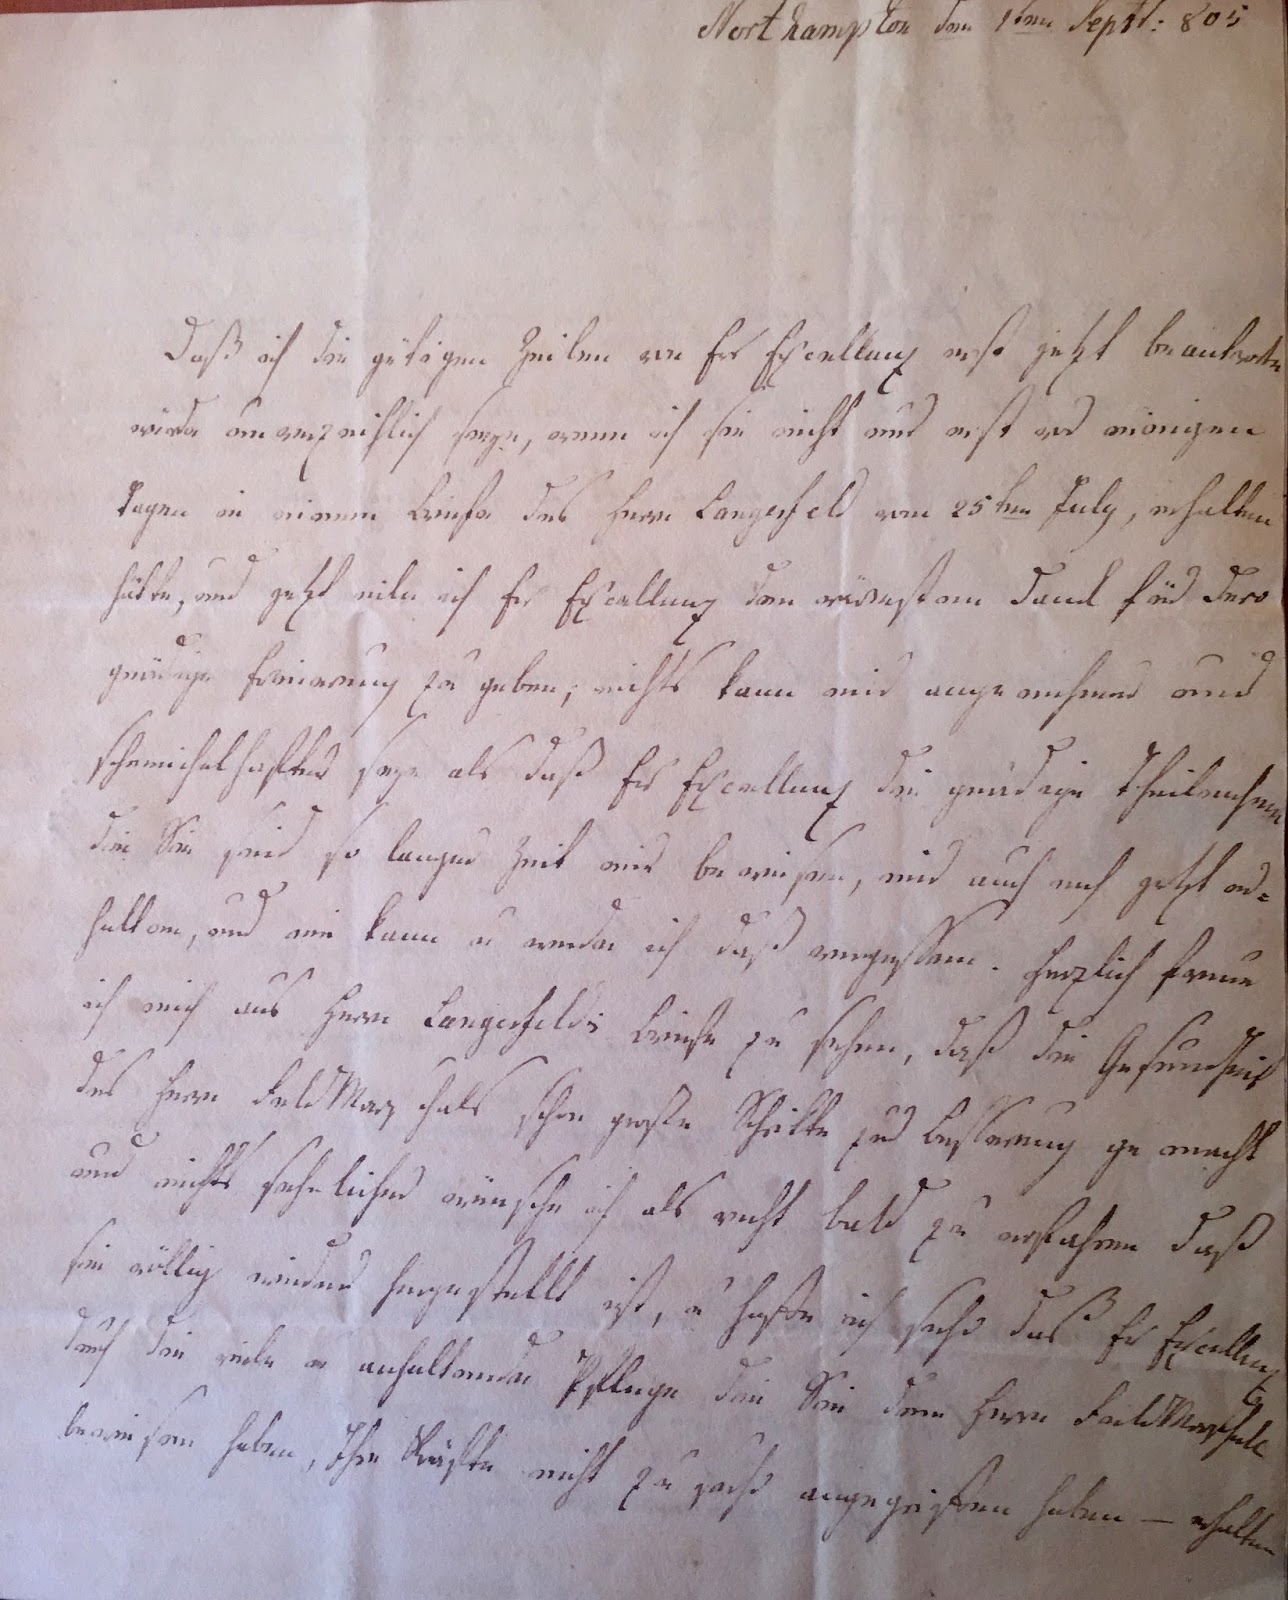 Northampton den 1ten Sept: 805
Daß ich die gütigen Zeilen von Er Excellenz erst jetzt beantworte
würde unverzeihlich seyn, wenn ich sie nicht nur erst vor einigen
Tagen in einem Briefe des Herrn Langerfeld vom 25ten July, erhalten
hätte, und jetzt eile ich Er Excellenz den wärmsten Dank für Dero
gnädige Erinerung zu geben; nichts kann mir angenehmer und
schmeichelhafter seyn als daß Er Excellenz die gnädige Theilnahme
die Sie seid so langer Zeit mir bewiesen, mir auch noch jetzt er=
halten, und nie kann u werde ich daß vergessen. Herzlich freue
ich mich aus Herrn Langerfelds Briefe zu sehen, daß die Gesundheit
des Herrn FeldMarschals schon große Schritte zur Besserung gemacht
und nichts sehnlicher wünsche ich als recht bald zu erfahren daß
sie völlig wieder hergestellt ist, u hoffe ich sehr daß Er Excellenz
durch die viele u anhaltende Pflege die Sie dem Herrn FeldMarschall
bewiesen haben, Ihre Kräfte nicht zu sehr angegriffen haben — erhalten